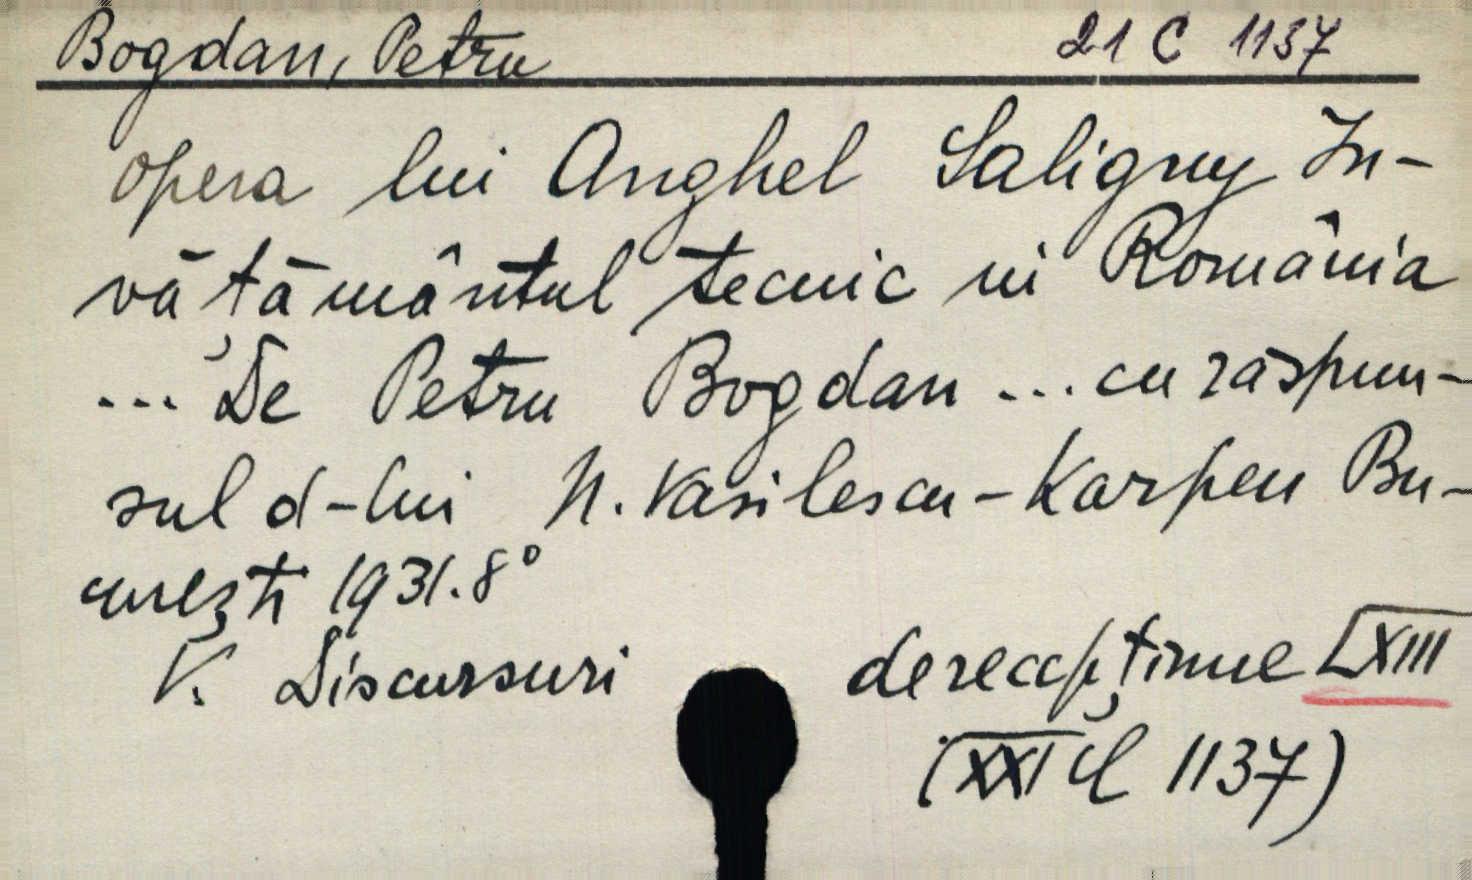 Bogdan, Petru 21 C 1137
Opera lui Anghel Saligny În-
vățământul tecnic în România
... De Petru Bogdan ... cu răspun-
sul d-lui N. Vasilescu-Karpen Bu-
curești 1931. 8°
V. Discursuri de recepțiune LXIII
(XXI C 1137)